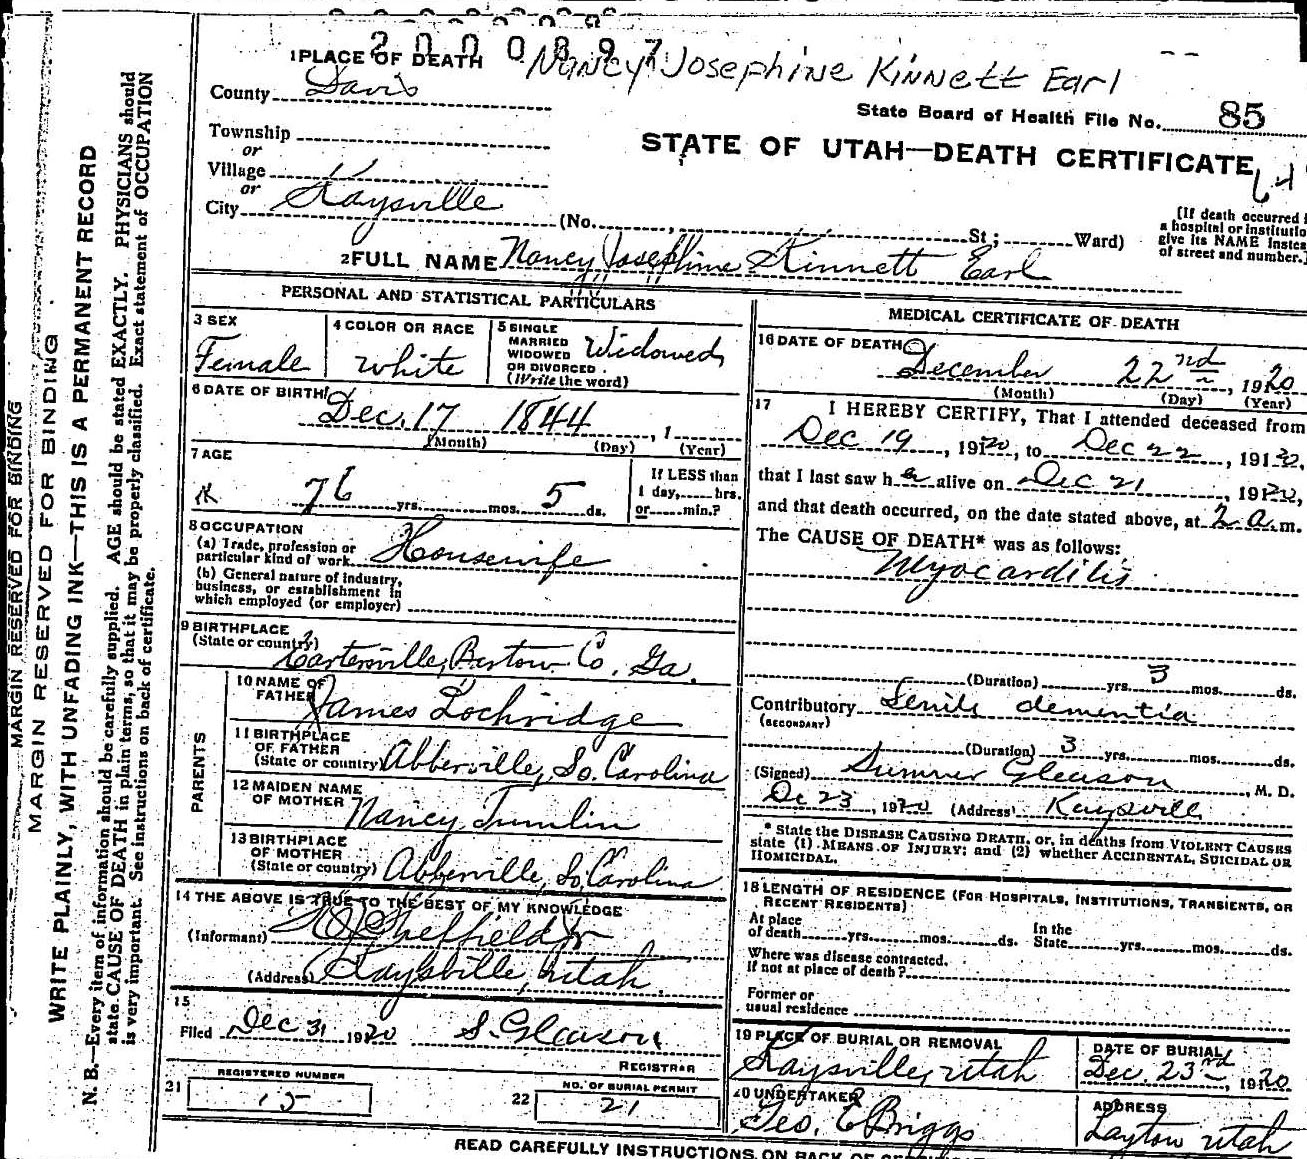 2000897
1 PLACE OF DEATH Nancy Josephine Kinnett Earl
County Davis
State Board of Health File No. 85
Township
or
STATE OF UTAH—DEATH CERTIFICATE
Village
or
City Kaysville (No. , St; Ward)
[If death occurred
a hospital or institutio
give its NAME instea
of street and number.]
2 FULL NAME Nancy Josephine Kinnett Earl
PERSONAL AND STATISTICAL PARTICULARS
3 SEX Female
4 COLOR OR RACE white
5 SINGLE
MARRIED
WIDOWED
OR DIVORCED
(Write the word) Widowed
6 DATE OF BIRTH Dec. 17 1844, 1
(Month) (Day) (Year)
7 AGE
76 yrs. mos. 5 ds.
If LESS than
1 day, hrs.
or min.?
8 OCCUPATION
(a) Trade, profession or
particular kind of work Housewife
(b) General nature of industry,
business, or establishment in
which employed (or employer)
9 BIRTHPLACE
(State or country) Cartersville, Bartow Co. Ga.
PARENTS
10 NAME OF
FATHER James Lochridge
11 BIRTHPLACE
OF FATHER
(State or country) Abberville, So. Carolina
12 MAIDEN NAME
OF MOTHER Nancy Tumlin
13 BIRTHPLACE
OF MOTHER
(State or country) Abberville, So. Carolina
14 THE ABOVE IS TRUE TO THE BEST OF MY KNOWLEDGE
(Informant) Sheffield Jr
(Address) Kaysville, Utah.
15
Filed Dec 31 1920 S. Gleason
REGISTRAR
21 REGISTERED NUMBER 15
22 NO. OF BURIAL PERMIT 21
MEDICAL CERTIFICATE OF DEATH
16 DATE OF DEATH December 22nd, 1920
(Month) (Day) (Year)
17 I HEREBY CERTIFY, That I attended deceased from
Dec 19, 1920, to Dec 22, 1920,
that I last saw her alive on Dec 21, 1920,
and that death occurred, on the date stated above, at 2 a.m.
The CAUSE OF DEATH* was as follows:
Myocarditis
(Duration) yrs. 3 mos. ds.
Contributory Senile dementia
(SECONDARY)
(Duration) 3 yrs. mos. ds.
(Signed) Sumner Gleason, M. D.
Dc 23, 1920 (Address) Kaysville
* State the DISEASE CAUSING DEATH, or, in deaths from VIOLENT CAUSES
state (1) MEANS OF INJURY; and (2) whether ACCIDENTAL, SUICIDAL OR
HOMICIDAL.
18 LENGTH OF RESIDENCE (FOR HOSPITALS, INSTITUTIONS, TRANSIENTS, OR
RECENT RESIDENTS)
At place
of death yrs. mos. ds.
In the
State yrs. mos. ds.
Where was disease contracted.
if not at place of death?
Former or
usual residence
19 PLACE OF BURIAL OR REMOVAL
Kaysville, Utah
DATE OF BURIAL
Dec. 23rd, 1920
20 UNDERTAKER
Geo. E Briggs
ADDRESS
Layton Utah
READ CAREFULLY INSTRUCTIONS ON BACK OF
MARGIN RESERVED FOR BINDING
MARGIN RESERVED FOR BINDING
WRITE PLAINLY, WITH UNFADING INK—THIS IS A PERMANENT RECORD
N. B.—Every item of information should be carefully supplied. AGE should be stated EXACTLY. PHYSICIANS should
state CAUSE OF DEATH in plain terms, so that it may be properly classified. Exact statement of OCCUPATION
is very important. See instructions on back of certificate.